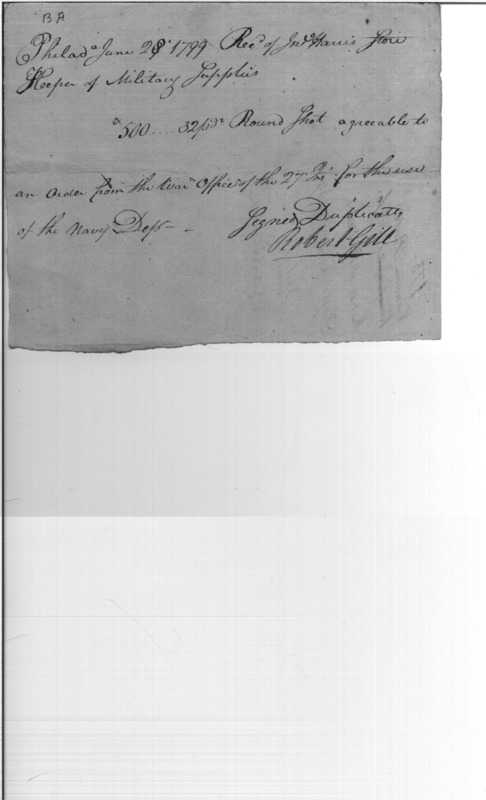 BA
Philada June 28 1799 Recd of Jno Harris Store
Keeper of Military Supplies
500 .... 32pdr Round Shot agreeable to
an order from the War Office of the 27 for the use
of the Navy Dept
Signed Duplicates
Robert Gill